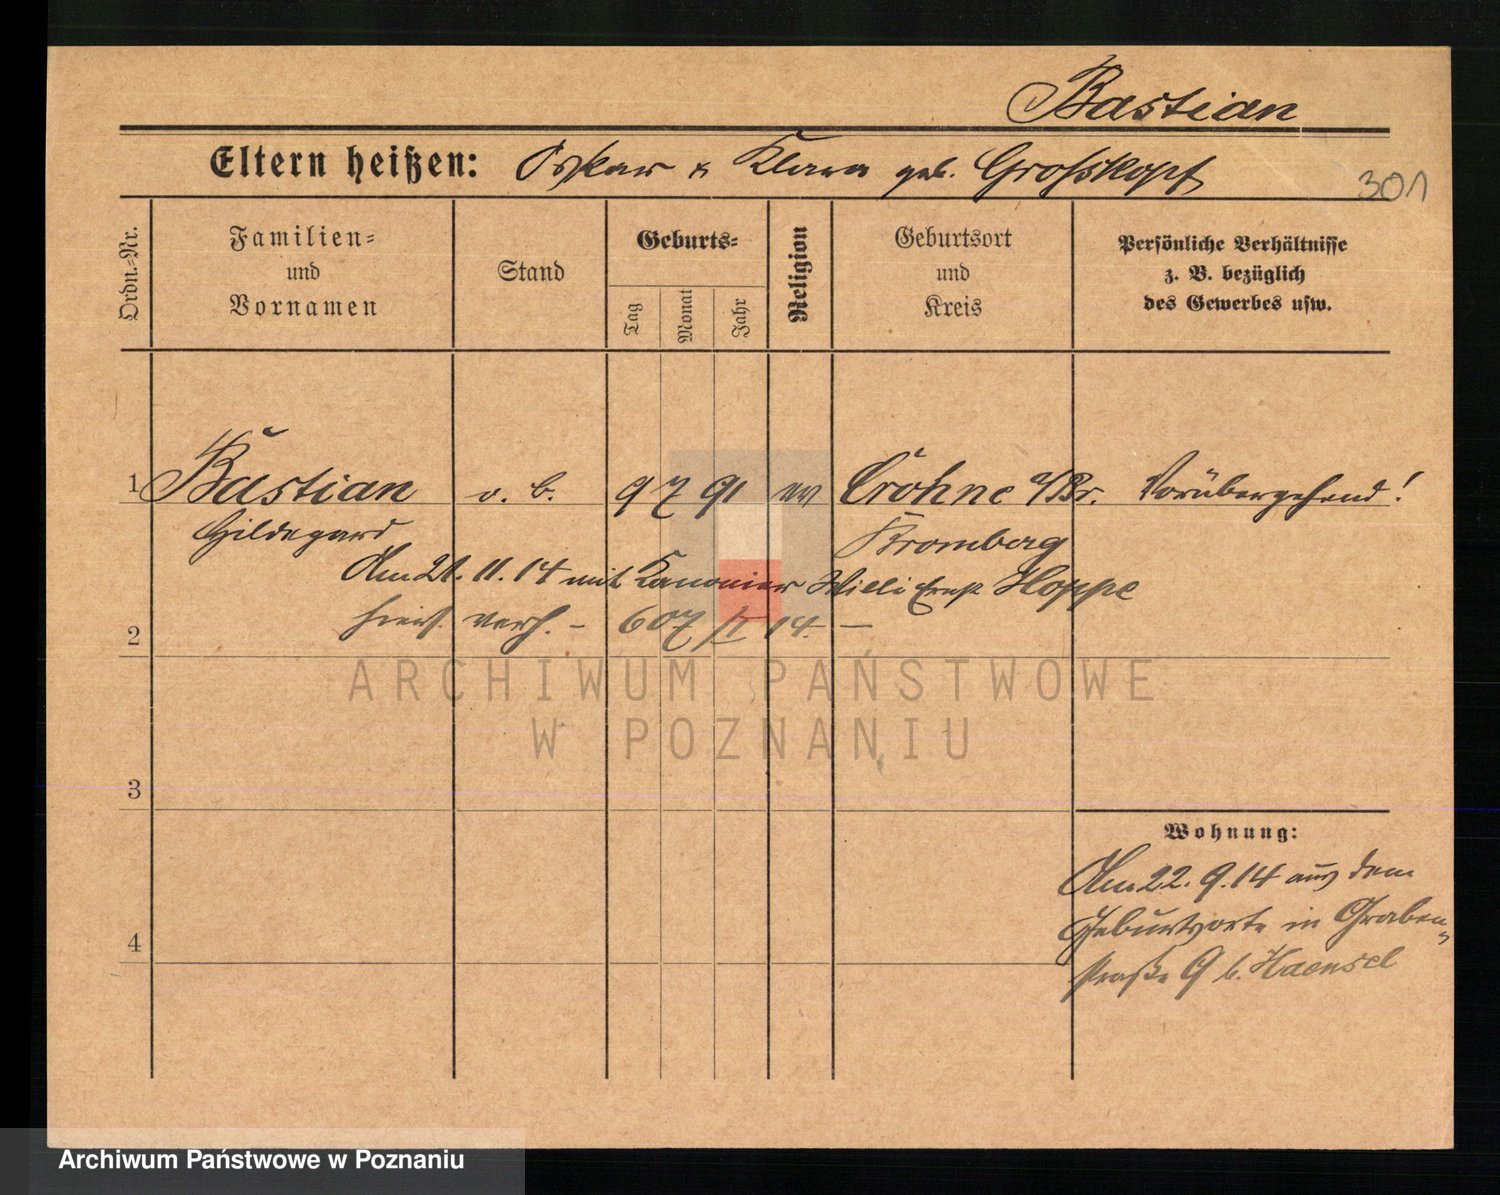 Bastian
Eltern heißen: Oskar u Klara geb. Grosskopf
301
Ordn.-Nr.
Familien-
und
Vornamen
Stand
Geburts-
Tag
Monat
Jahr
Religion
Geburtsort
und
Kreis
Persönliche Verhältnisse
z. B. bezüglich
des Gewerbes usw.
1 Bastian o. B. 9 7 91 ev Cröhne Vorübergehend!
Hildegard Bromberg
Am 21. 11. 14 mit Kanonier Willi Ernst Hoppe
hiers. verh. – 607/II 14. —
2
3
4
Wohnung:
Am 22. 9. 14 aus dem
Geburtsorte in Graben-
straße 9 b. Haensel
ARCHIWUM PAŃSTWOWE
W POZNANIU
Archiwum Państwowe w Poznaniu